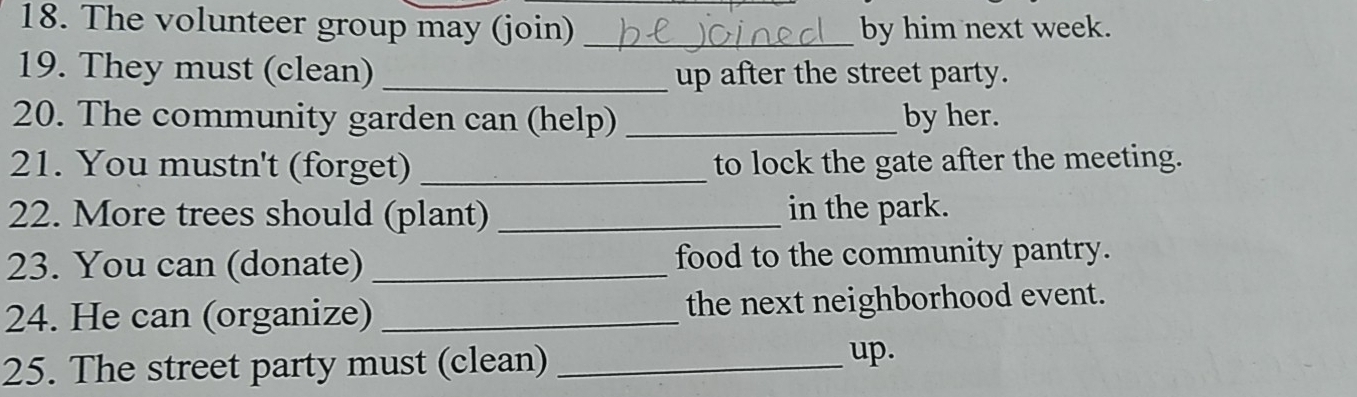 18. The volunteer group may (join) be joined by him next week.
19. They must (clean) ____________ up after the street party.
20. The community garden can (help) ____________ by her.
21. You mustn't (forget) ____________ to lock the gate after the meeting.
22. More trees should (plant) ____________ in the park.
23. You can (donate) ____________ food to the community pantry.
24. He can (organize) ____________ the next neighborhood event.
25. The street party must (clean) ____________ up.